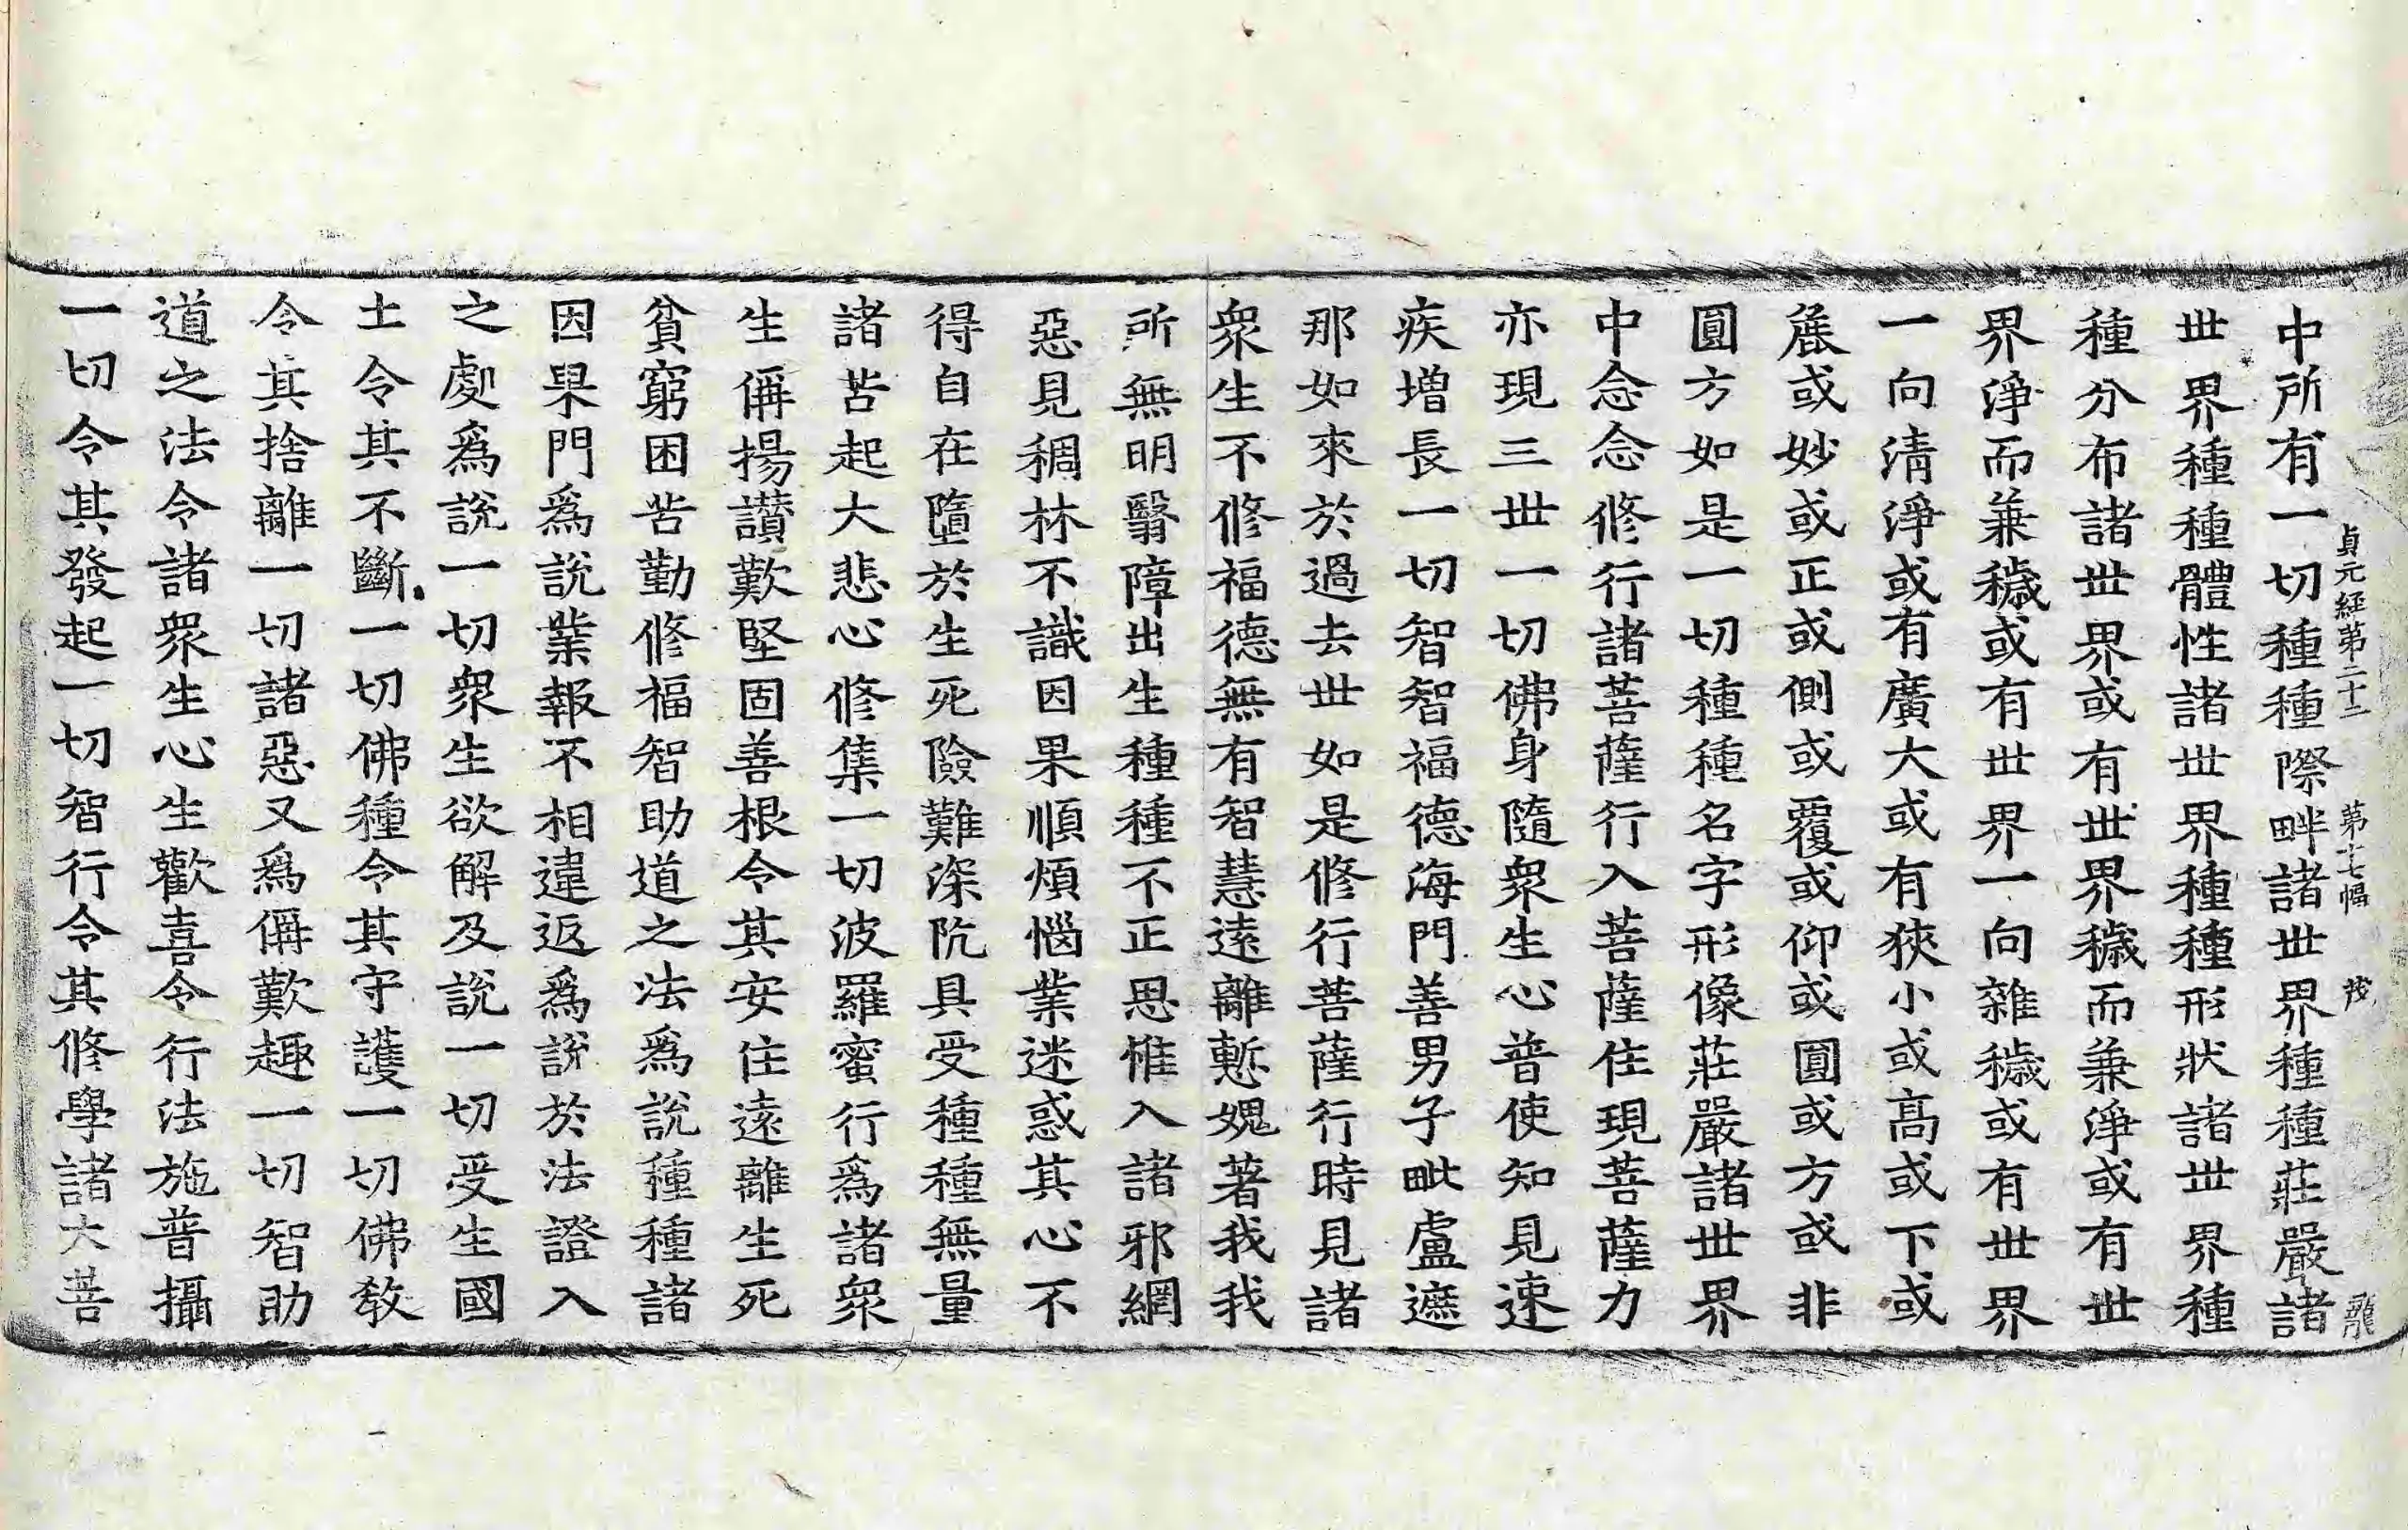 貞元経第二十二 第十七幅 茂 龍
中所有一切種種際畔諸世界種種莊嚴諸
世界種種體性諸世界種種形狀諸世界種
種分布諸世界或有世界穢而兼淨或有世
界淨而兼穢或有世界一向雜穢或有世界
一向清淨或有廣大或有狹小或高或下或
麁或妙或正或側或覆或仰或圓或方或非
圓方如是一切種種名字形像莊嚴諸世界
中念念修行諸菩薩行入菩薩住現菩薩力
亦現三世一切佛身隨衆生心普使知見速
疾增長一切智智福德海門善男子毗盧遮
那如來於過去世如是修行菩薩行時見諸
衆生不修福德無有智慧遠離慙媿著我我
所無明翳障出生種種不正思惟入諸邪網
惡見稠林不識因果順煩惱業迷惑其心不
得自在墮於生死險難深阬具受種種無量
諸苦起大悲心修集一切波羅蜜行爲諸衆
生偁揚讚歎堅固善根令其安住遠離生死
貧窮困苦勤修福智助道之法爲說種種諸
因果門爲說業報不相違返爲說於法證入
之處爲說一切衆生欲解及說一切受生國
土令其不斷一切佛種令其守護一切佛教
令其捨離一切諸惡又爲偁歎趣一切智助
道之法令諸衆生心生歡喜令行法施普攝
一切令其發起一切智行令其修學諸大菩